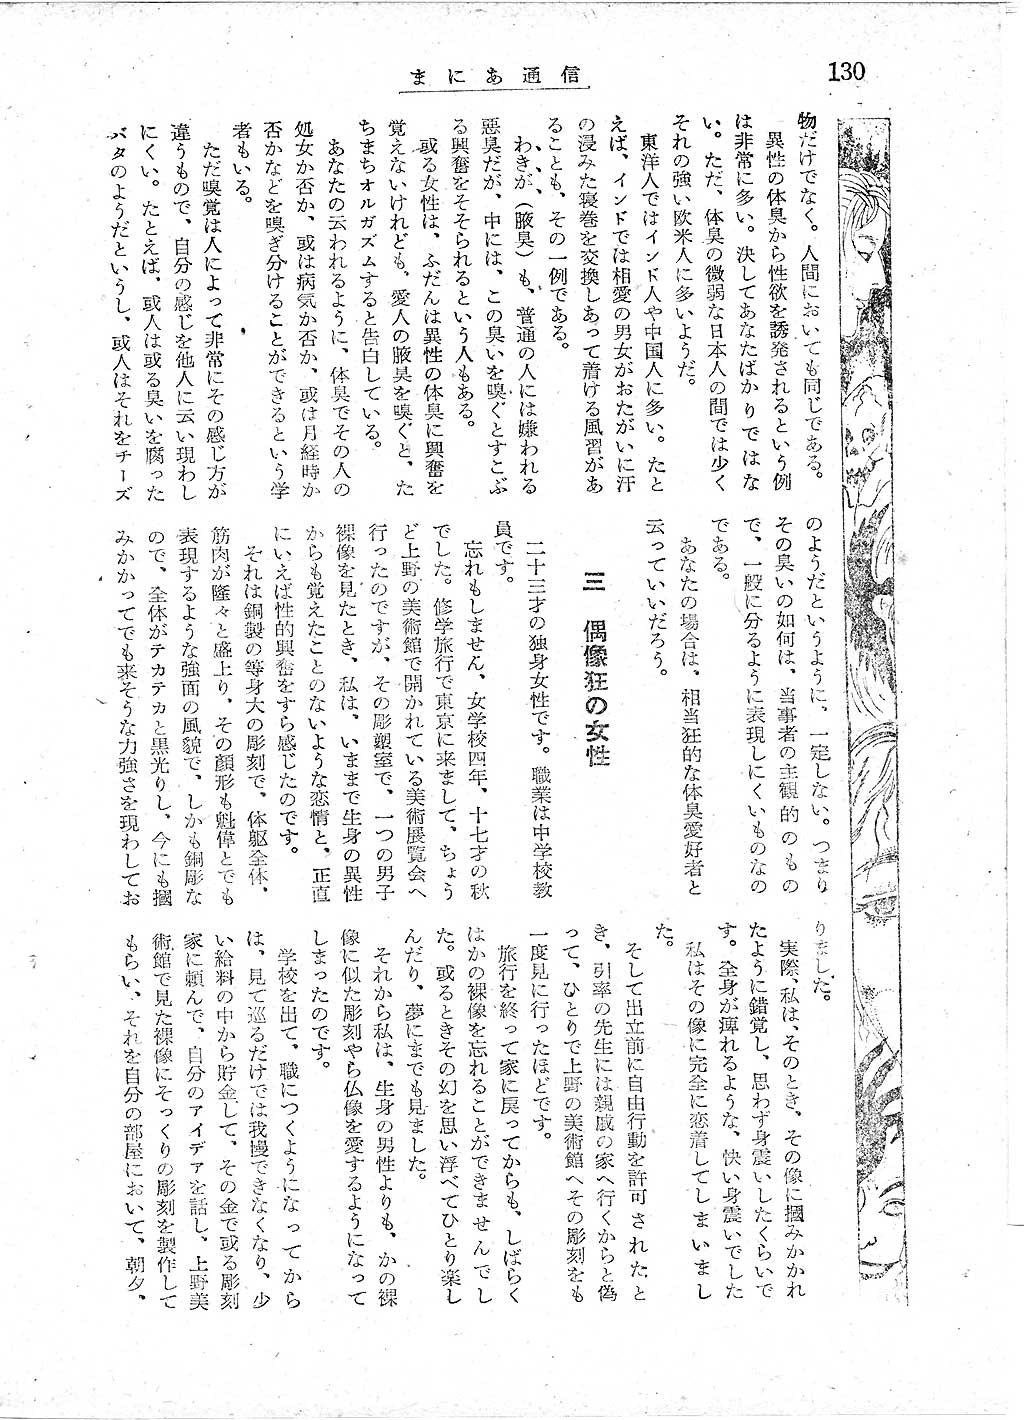 130
まにあ通信
物だけでなく。人間においても同じである。
異性の体臭から性欲を誘発されるという例
は非常に多い。決してあなたばかりではな
い。ただ、体臭の微弱な日本人の間では少く
それの強い欧米人に多いようだ。
東洋人ではインド人や中国人に多い。たと
えば、インドでは相愛の男女がおたがいに汗
の浸みた寝巻を交換しあって着ける風習があ
ることも、その一例である。
わきが(腋臭)も、普通の人には嫌われる
悪臭だが、中には、この臭いを嗅ぐとすこぶ
る興奮をそそられるという人もある。
或る女性は、ふだんは異性の体臭に興奮を
覚えないけれども、愛人の腋臭を嗅ぐと、た
ちまちオルガズムすると告白している。
あなたの云われるように、体臭でその人の
処女か否か、或は病気か否か、或は月経時か
否かなどを嗅ぎ分けることができるという学
者もいる。
ただ嗅覚は人によって非常にその感じ方が
違うもので、自分の感じを他人に云い現わし
にくい。たとえば、或人は或る臭いを腐った
バタのようだというし、或人はそれをチーズ
のようだというように、一定しない。つまり
その臭いの如何は、当事者の主観的のもの
で、一般に分るように表現しにくいものなの
である。
あなたの場合は、相当狂的な体臭愛好者と
云っていいだろう。
三 偶像狂の女性
二十三才の独身女性です。職業は中学校教
員です。
忘れもしません、女学校四年、十七才の秋
でした。修学旅行で東京に来まして、ちょう
ど上野の美術館で開かれている美術展覧会へ
行ったのですが、その彫塑室で、一つの男子
裸像を見たとき、私は、いままで生身の異性
からも覚えたことのないような恋情と、正直
にいえば性的興奮をすら感じたのです。
それは銅製の等身大の彫刻で、体躯全体、
筋肉が隆々と盛上り、その顔形も魁偉とでも
表現するような強面の風貌で、しかも銅彫な
ので、全体がテカテカと黒光りし、今にも摑
みかかってでも来そうな力強さを現わしてお
りました。
実際、私は、そのとき、その像に摑みかかれ
たように錯覚し、思わず身震いしたくらいで
す。全身が痺れるような、快い身震いでした
私はその像に完全に恋着してしまいまし
た。
そして出立前に自由行動を許可されたと
き、引率の先生には親戚の家へ行くからと偽
って、ひとりで上野の美術館へその彫刻をも
一度見に行ったほどです。
旅行を終って家に戻ってからも、しばらく
はかの裸像を忘れることができませんでし
た。或るときその幻を思い浮べてひとり楽し
んだり、夢にまでも見ました。
それから私は、生身の男性よりも、かの裸
像に似た彫刻やら仏像を愛するようになって
しまったのです。
学校を出て、職につくようになってから
は、見て巡るだけでは我慢できなくなり、少
い給料の中から貯金して、その金で或る彫刻
家に頼んで、自分のアイデアを話し、上野美
術館で見た裸像にそっくりの彫刻を製作して
もらい、それを自分の部屋において、朝夕、